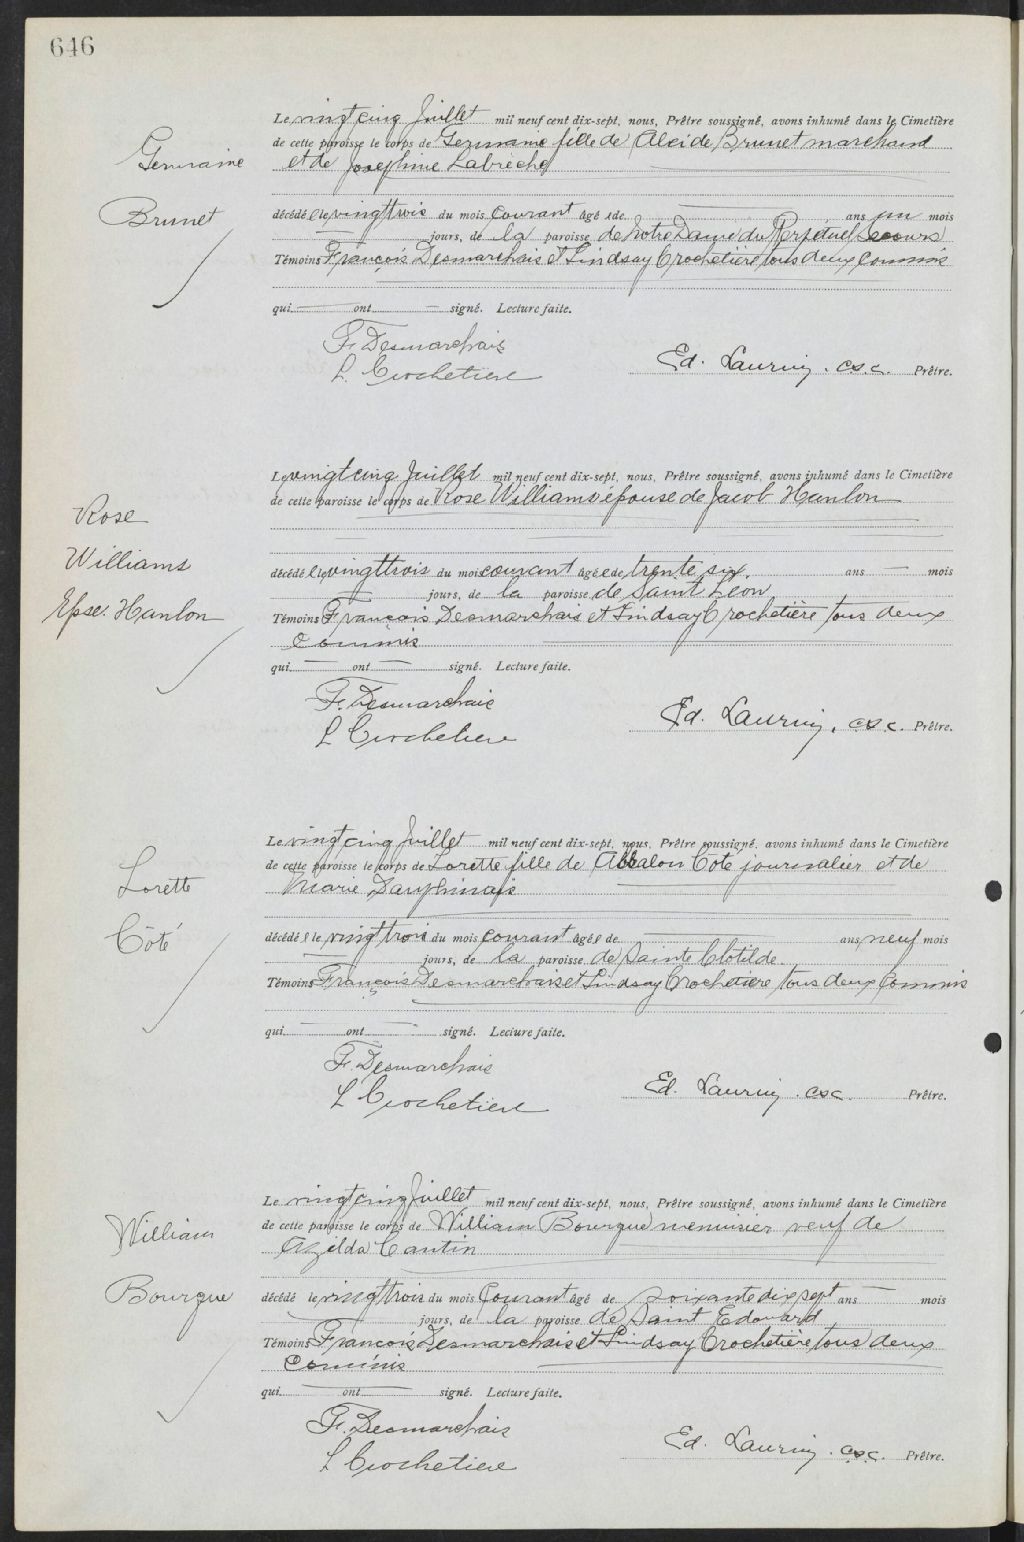 646
Le vingt cinq Juillet mil neuf cent dix-sept, nous, Prêtre soussigné, avons inhumé dans le Cimetière
de cette paroisse le corps de Germaine fille de Alcide Brunet marchand
et de Josephine Labrèche
Germaine
Brunet
décédée le vingt trois du mois courant âgée de ans un mois
jours, de la paroisse de Notre Dame du Perpétuel Secours
Témoins François Desmarchais et Lindsay Crochetière tous deux commis
qui ont signé. Lecture faite.
F. Desmarchais
L. Crochetiere
Ed. Laurin, c.s.c. Prêtre.
Le vingt cinq Juillet mil neuf cent dix-sept, nous, Prêtre soussigné, avons inhumé dans le Cimetière
de cette paroisse le corps de Rose Williams épouse de Jacob Hanlon
Rose
Williams
Epse. Hanlon
décédée le vingt trois du mois courant âgée de trente six. ans mois
jours, de la paroisse de Saint Léon
Témoins François Desmarchais et Lindsay Crochetière tous deux
commis
qui ont signé. Lecture faite.
F. Desmarchais
L Crochetiere
Ed. Laurin, c.s.c. Prêtre.
Le vingt cinq Juillet mil neuf cent dix-sept, nous, Prêtre soussigné, avons inhumé dans le Cimetière
de cette paroisse le corps de Lorette fille de Abbalon Coté journalier et de
Marie Dauphinais
Lorette
Côté
décédée le vingt trois du mois courant âgée de ans, neuf mois
jours, de la paroisse de Sainte Clotilde
Témoins François Desmarchais et Lindsay Crochetière tous deux commis
qui ont signé. Lecture faite.
F. Desmarchais
L Crochetiere
Ed. Laurin, c.s.c. Prêtre.
Le vingt cinq Juillet mil neuf cent dix-sept, nous, Prêtre soussigné, avons inhumé dans le Cimetière
de cette paroisse le corps de William Bourque menuisier veuf de
Azilda Cantin
William
Bourque
décédé le vingt trois du mois courant âgé de soixante dix sept ans mois
jours, de la paroisse de Saint Edouard
Témoins François Desmarchais et Lindsay Crochetière tous deux
commis
qui ont signé. Lecture faite.
F. Desmarchais
L Crochetiere
Ed. Laurin, c.s.c. Prêtre.